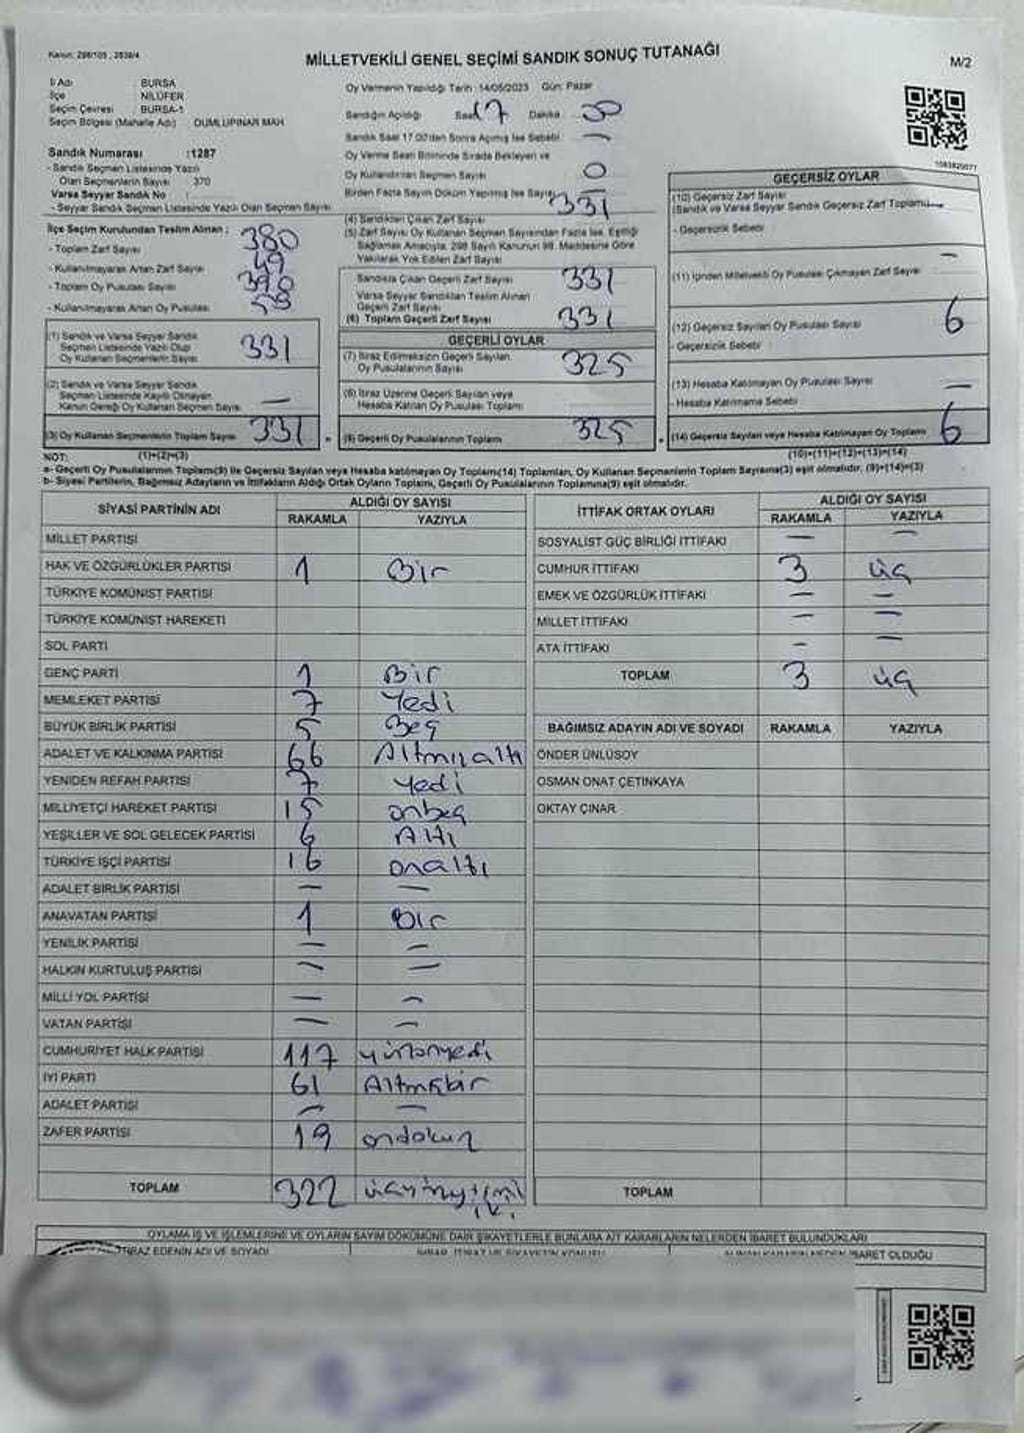 Kanun: 298/105 , 2839/4
MİLLETVEKİLİ GENEL SEÇİMİ SANDIK SONUÇ TUTANAĞI
M/2
İl Adı BURSA
İlçe NİLÜFER
Seçim Çevresi BURSA-1
Seçim Bölgesi (Mahalle Adı) DUMLUPINAR MAH.
Sandık Numarası :1287
- Sandık Seçmen Listesinde Yazılı
Olan Seçmenlerin Sayısı 370
Varsa Seyyar Sandık No :
- Seyyar Sandık Seçmen Listesinde Yazılı Olan Seçmen Sayısı
İlçe Seçim Kurulundan Teslim Alınan ;
- Toplam Zarf Sayısı 380
- Kullanılmayarak Artan Zarf Sayısı 49
- Toplam Oy Pusulası Sayısı
- Kullanılmayarak Artan Oy Pusulası
(1) Sandık ve Varsa Seyyar Sandık
Seçmen Listesinde Yazılı Olup
Oy Kullanan Seçmenlerin Sayısı 331
(2) Sandık ve Varsa Seyyar Sandık
Seçmen Listesinde Kayıtlı Olmayan
Kanun Gereği Oy Kullanan Seçmen Sayısı —
(3) Oy Kullanan Seçmenlerin Toplam Sayısı 331
Oy Vermenin Yapıldığı Tarih : 14/05/2023 Gün: Pazar
Sandığın Açıldığı Saat 17 Dakika
Sandık Saat 17:00'den Sonra Açılmış İse Sebebi: —
Oy Verme Saati Bitiminde Sırada Bekleyen ve
Oy Kullandırılan Seçmen Sayısı 0
Birden Fazla Sayım Döküm Yapılmış İse Sayısı —
(4) Sandıktan Çıkan Zarf Sayısı 331
(5) Zarf Sayısı Oy Kullanan Seçmen Sayısından Fazla İse, Eşitliği
Sağlamak Amacıyla, 298 Sayılı Kanunun 98. Maddesine Göre
Yakılarak Yok Edilen Zarf Sayısı
Sandıkta Çıkan Geçerli Zarf Sayısı 331
Varsa Seyyar Sandıktan Teslim Alınan
Geçerli Zarf Sayısı
(6) Toplam Geçerli Zarf Sayısı 331
GEÇERLİ OYLAR
(7) İtiraz Edilmeksizin Geçerli Sayılan
Oy Pusulalarının Sayısı 325
(8) İtiraz Üzerine Geçerli Sayılan veya
Hesaba Katılan Oy Pusulası Toplamı
(9) Geçerli Oy Pusulalarının Toplamı 325
1083820077
GEÇERSİZ OYLAR
(10) Geçersiz Zarf Sayısı
(Sandık ve Varsa Seyyar Sandık Geçersiz Zarf Toplamı) —
- Geçersizlik Sebebi
(11) İçinden Milletvekili Oy Pusulası Çıkmayan Zarf Sayısı —
(12) Geçersiz Sayılan Oy Pusulası Sayısı 6
- Geçersizlik Sebebi
(13) Hesaba Katılmayan Oy Pusulası Sayısı —
- Hesaba Katılmama Sebebi
(14) Geçersiz Sayılan veya Hesaba Katılmayan Oy Toplamı 6
NOT: (1)+(2)=(3) (10)+(11)+(12)+(13)=(14)
a- Geçerli Oy Pusulalarının Toplamı(9) ile Geçersiz Sayılan veya Hesaba katılmayan Oy Toplamı(14) Toplamları, Oy Kullanan Seçmenlerin Toplam Sayısına(3) eşit olmalıdır. (9)+(14)=(3)
b- Siyasi Partilerin, Bağımsız Adayların ve İttifakların Aldığı Ortak Oyların Toplamı, Geçerli Oy Pusulalarının Toplamına(9) eşit olmalıdır.
SİYASİ PARTİNİN ADI ALDIĞI OY SAYISI
RAKAMLA YAZIYLA
MİLLET PARTİSİ
HAK VE ÖZGÜRLÜKLER PARTİSİ 1 Bir
TÜRKİYE KOMÜNİST PARTİSİ
TÜRKİYE KOMÜNİST HAREKETİ
SOL PARTİ
GENÇ PARTİ 1 Bir
MEMLEKET PARTİSİ 7 Yedi
BÜYÜK BİRLİK PARTİSİ 5 Beş
ADALET VE KALKINMA PARTİSİ 66 Altmışaltı
YENİDEN REFAH PARTİSİ 7 Yedi
MİLLİYETÇİ HAREKET PARTİSİ 15 onbeş
YEŞİLLER VE SOL GELECEK PARTİSİ 6 Altı
TÜRKİYE İŞÇİ PARTİSİ 16 onaltı
ADALET BİRLİK PARTİSİ — —
ANAVATAN PARTİSİ 1 Bir
YENİLİK PARTİSİ — —
HALKIN KURTULUŞ PARTİSİ — —
MİLLİ YOL PARTİSİ — —
VATAN PARTİSİ — —
CUMHURİYET HALK PARTİSİ 117 yüzonyedi
İYİ PARTİ 61 Altmışbir
ADALET PARTİSİ — —
ZAFER PARTİSİ 19 ondokuz
TOPLAM 322 üçyüzyirmi iki
İTTİFAK ORTAK OYLARI ALDIĞI OY SAYISI
RAKAMLA YAZIYLA
SOSYALİST GÜÇ BİRLİĞİ İTTİFAKI — —
CUMHUR İTTİFAKI 3 üç
EMEK VE ÖZGÜRLÜK İTTİFAKI — —
MİLLET İTTİFAKI — —
ATA İTTİFAKI — —
TOPLAM 3 üç
BAĞIMSIZ ADAYIN ADI VE SOYADI RAKAMLA YAZIYLA
ÖNDER ÜNLÜSOY
OSMAN ONAT ÇETİNKAYA
OKTAY ÇINAR
TOPLAM
OYLAMA İŞ VE İŞLEMLERİNE VE OYLARIN SAYIM DÖKÜMÜNE DAİR ŞİKAYETLERLE BUNLARA AİT KARARLARIN NELERDEN İBARET BULUNDUKLARI
İTİRAZ EDENİN ADI VE SOYADI
İBARET OLDUĞU